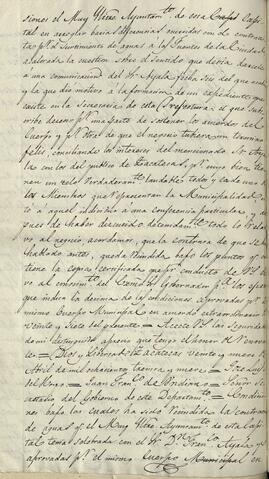 siones el Muy Iltre Ayuntamto de esa Capi-
tal en arreglar varias diferencias ocurridas con la contra-
ta pa el surtimiento de aguas a las fuentes de la Ciudad,
alarmada la cuestion sobre el sentido que devia darsele
a una comunicacion del Sr Ayala fecha seis del que acaba
y la que dio motivo a la formacion de un expediente que
existe en la Secretaria de esta Prefectura; el que subs-
cribe deseoso pr una parte de sostener los acuerdos del
Cuerpo y pr otra de que el negocio tubiera un termino
feliz, conciliando los intereses del mencionado Sr Aya-
la con los del publico de Zacatecas, pr cuyo bien tie-
nen un celo verdaderamte laudable todos y cada uno de
los Miembros que representan la Municipalidad
to a aquel individuo a una conferencia particular, y
pues de haber discutido detenidamte todo lo relati-
vo al negocio acordamos, que la contrata de que se
hablado antes, queda rescindida bajo los puntos que
tiene la copia certificada que pr conducto de
vo al conocimto del Exmo Sr Gobernador pa los efectos
que indica la decima de las condiciones aprobadas pr el
mismo Cuerpo Municipal en acuerdo extraordinario
veinte y siete del presente = Acepte las seguridades
de mi distinguido aprecio que tengo el honor de renovar-
le = Dios y Libertad. Zacatecas veinte y nueve
Abril de mil ochocientos treinta y nueve = José Luis
del Hoyo = Juan Franco de = Señor Se-
cretario del Gobierno de este Departamto = Condicio-
nes bajo las cuales ha sido rescindida la contrata
de aguas qe el Muy Iltre Ayuntamto de esta capi-
tal tenia celebrada con el Sr Dn Franco Ayala y
aprovadas pr el mismo Cuerpo Municipal en